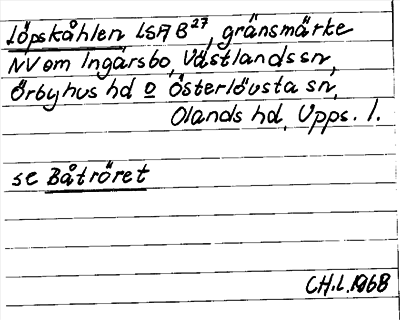 Löpskåhlen LSA B27, gränsmärke
NV om Ingarsbo, Västlands sn,
Örbyhus hd o Österlövsta sn,
Olands hd, Upps. l.
se Båtröret
CH.L. 1968